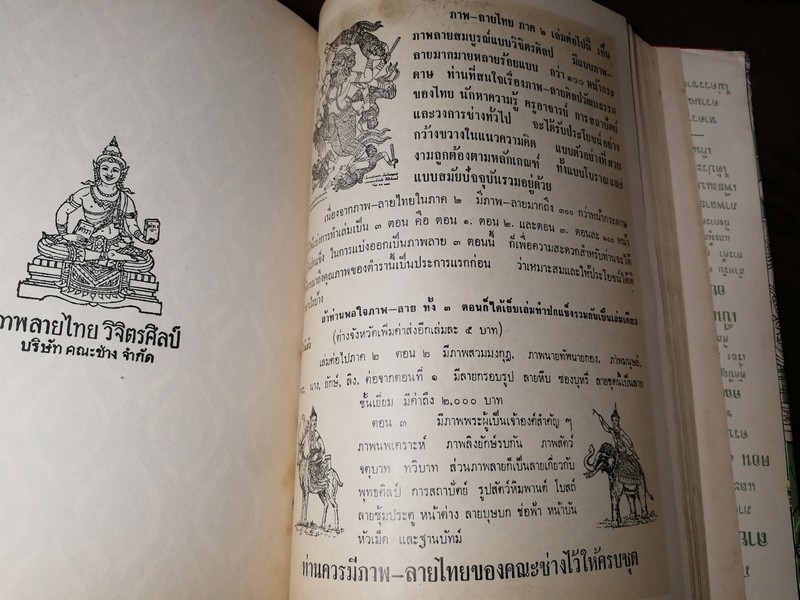 ภาพลายไทย วิจิตรศิลป์
บริษัท คณะช่าง จำกัด
ภาพ-ลายไทย ภาค ๒ เล่มต่อไปนี้ เป็น
ภาพลายสมบูรณ์แบบวิจิตรศิลป มีแบบภาพ-
ลายมากมายหลายร้อยแบบ กว่า ๓๐๐ หน้ากระ
ดาษ ท่านที่สนใจเรื่องภาพ-ลายศิลปวัฒนธรรม
ของไทย นักหาความรู้ ครูอาจารย์ การสถาปัตย์
และวงการช่างทั่วไป จะได้รับประโยชน์อย่าง
กว้างขวางในแนวความคิด แบบตัวอย่างที่สวย
งามถูกต้องตามหลักเกณฑ์ ทั้งแบบโบราณและ
แบบสมัยปัจจุบันรวมอยู่ด้วย
เนื่องจากภาพ-ลายไทยในภาค ๒ มีภาพ-ลายมากถึง ๓๐๐ กว่าหน้ากระดาษ
การทำเล่มเป็น ๓ ตอน คือ ตอน ๑. ตอน ๒. และตอน ๓. ตอนละ ๑๐๐ หน้า
ในการแบ่งออกเป็นภาพลาย ๓ ตอนนี้ ก็เพื่อความสะดวกสำหรับท่านจะได้
ถึงคุณภาพของตำรานี้เป็นประการแรกก่อน ว่าเหมาะสมและให้ประโยชน์ได้ดี
ถ้าท่านพอใจภาพ-ลาย ทั้ง ๓ ตอนก็ได้เย็บเล่มทำปกแข็งรวมกันเป็นเล่มเดียว
(ต่างจังหวัดเพิ่มค่าส่งอีกเล่มละ ๕ บาท)
เล่มต่อไปภาค ๒ ตอน ๒ มีภาพสวมมงกุฎ, ภาพนายทัพนายกอง, ภาพมนุษย์,
นาง, ยักษ์, ลิง, ต่อจากตอนที่ ๑ มีลายกรอบรูป ลายหีบ ซองบุหรี่ ลายชุดนี้เป็นลาย
ชั้นเยี่ยม มีค่าถึง ๒,๐๐๐ บาท
ตอน ๓ มีภาพพระผู้เป็นเจ้าองค์สำคัญ ๆ
ภาพนพเคราะห์ ภาพลิงยักษ์รบกัน ภาพสัตว์
จตุบาท ทวิบาท ส่วนภาพลายก็เป็นลายเกี่ยวกับ
พุทธศิลป์ การสถาปัตย์ รูปสัตว์หิมพานต์ โบสถ์
ลายซุ้มประตู หน้าต่าง ลายบุษบก ช่อฟ้า หน้าบัน
หัวเม็ด และฐานบัทม์
ท่านควรมีภาพ-ลายไทยของคณะช่างไว้ให้ครบชุด